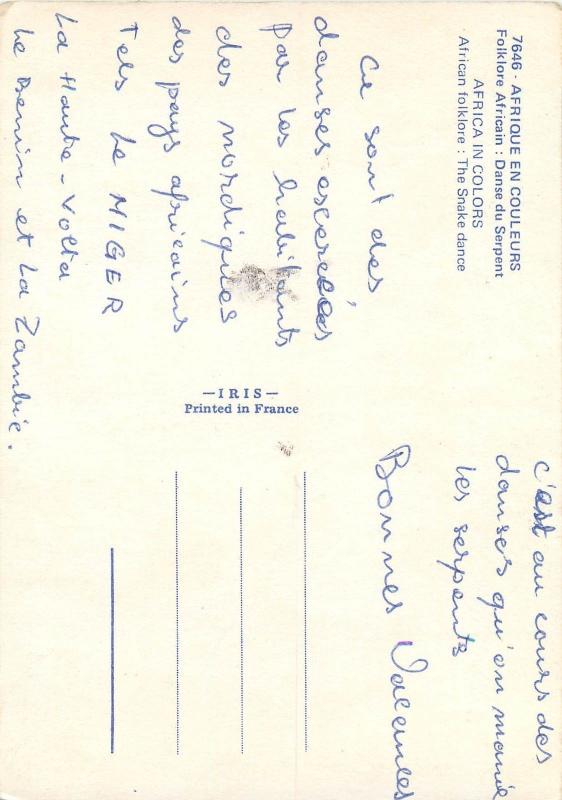 7646 - AFRIQUE EN COULEURS
Folklore Africain : Danse du Serpent
AFRICA IN COLORS
African folklore : The Snake dance
Ce sont des
danses exercées
par les habitants
des nordiques
des pays africains
Tels Le NIGER
La Haute-Volta
Le Benin et La Zambie.
—IRIS—
Printed in France
c'est au cours des
danses qu'on manie
les serpents
Bonnes Vacances